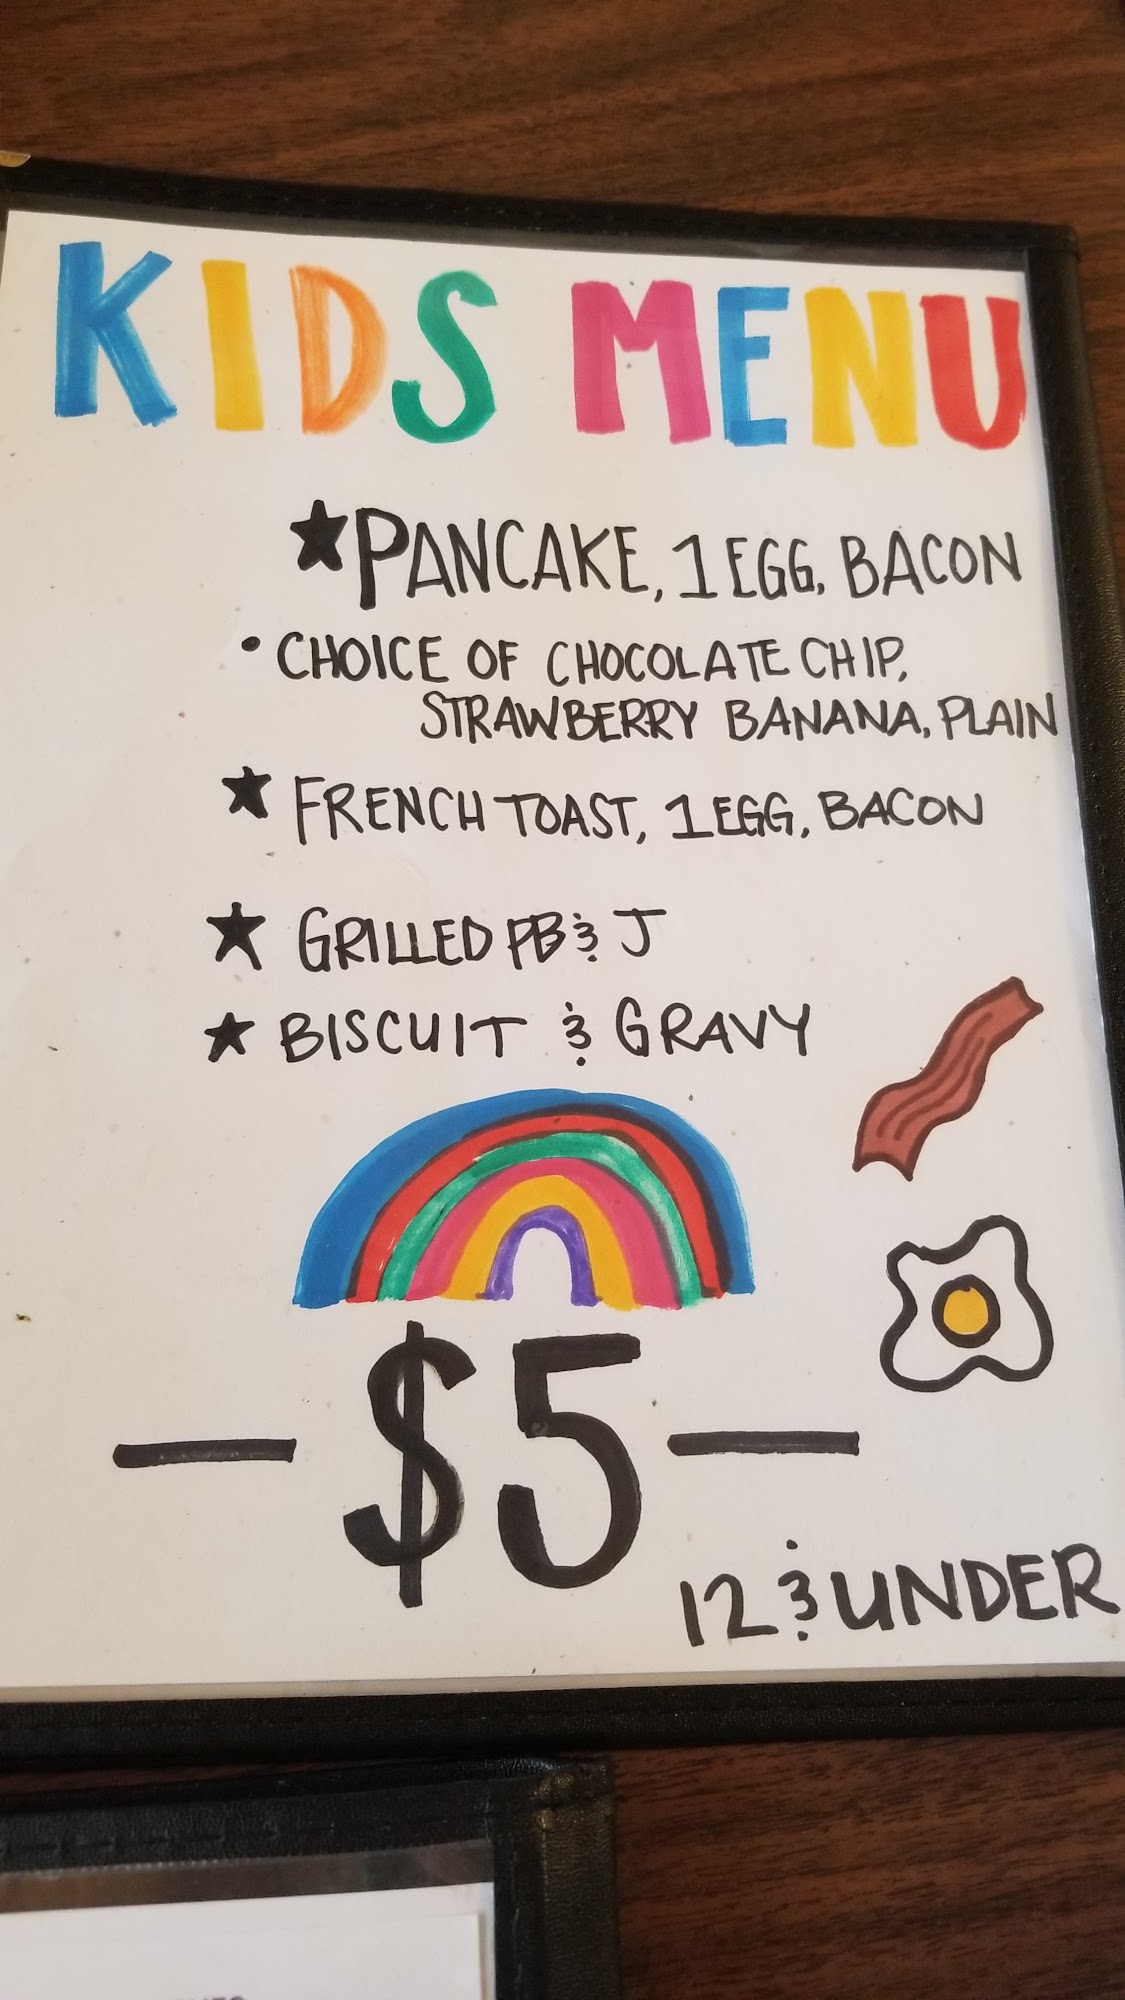 KIDS MENU
★PANCAKE, 1 EGG, BACON
• CHOICE OF CHOCOLATE CHIP,
STRAWBERRY BANANA, PLAIN
★ FRENCH TOAST, 1 EGG, BACON
★ GRILLED PB & J
★ BISCUIT & GRAVY
— $5 —
12 & UNDER